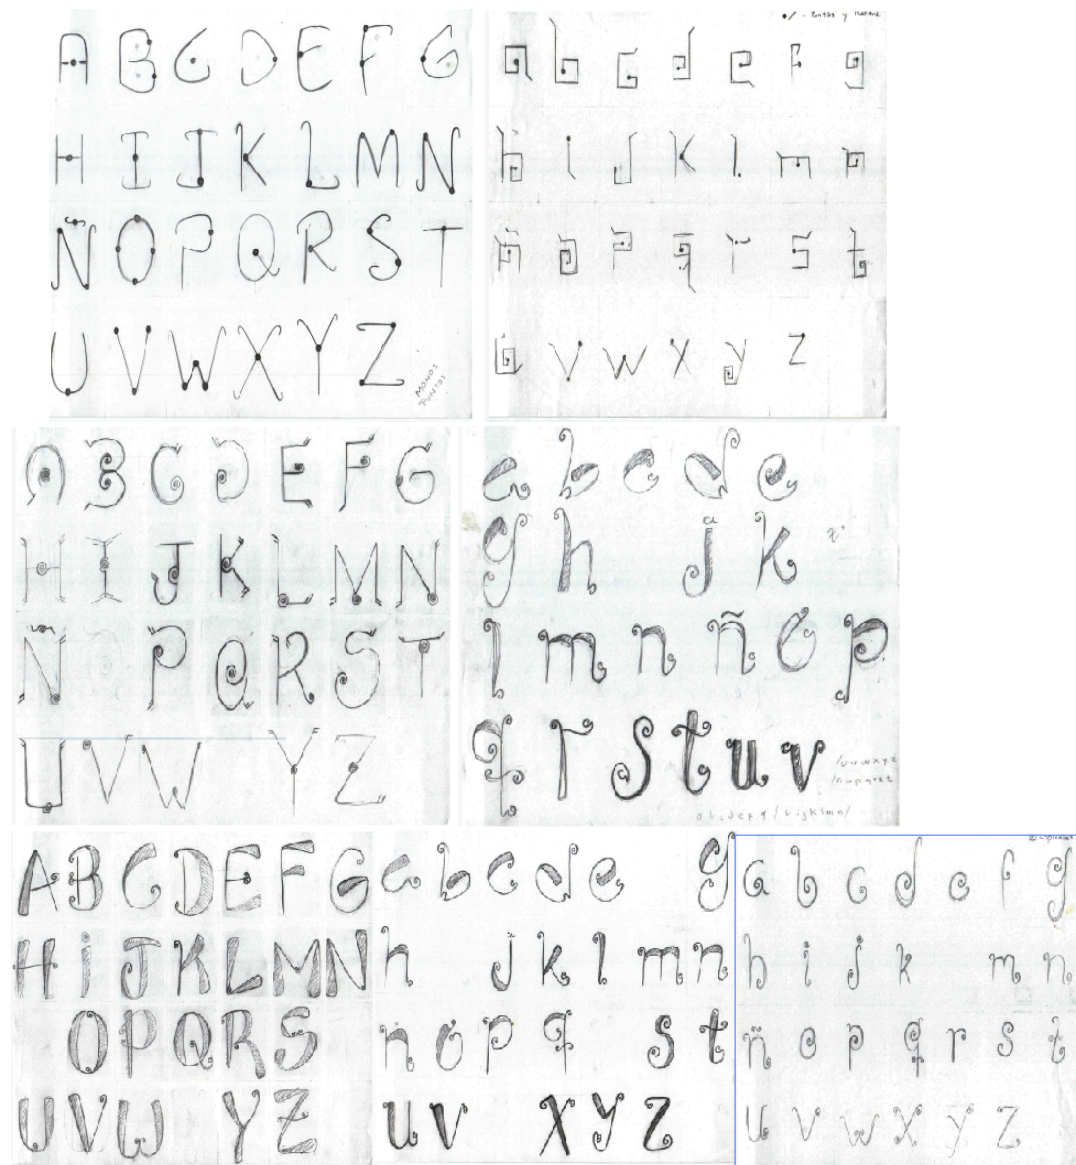 A B C D E F G
H I J K L M N
Ñ O P Q R S T
U V W X Y Z
MONOS
PUNTOS
- Puntas y
a b c d e f g
h i j k l m n
ñ o p q r s t
u v w x y z
A B C D E F G
H I J K L M N
Ñ O P Q R S T
U V W Y Z
a b c d e
g h j k
l m n ñ o p
q r s t u v
/uvwxyz
A B C D E F G
H i J K L M N
O P Q R S
U V W Y Z
a b c d e g
h j k l m n
ñ o p q s t
u v x y z
a b c d e f g
h i j k m n
ñ o p q r s t
u v w x y z